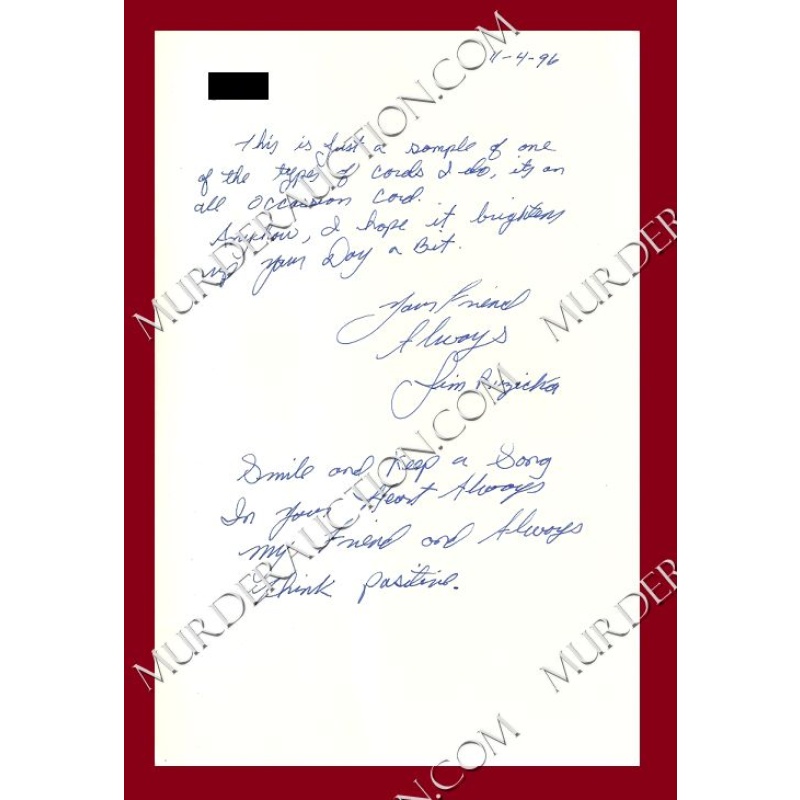 11-4-96
This is Just a sample of one
of the types of cards I do, its an
all occasion card.
Anyhow, I hope it brightens
up your Day a Bit.
Your Friend
Always
Jim Ruzicka
Smile and Keep a Song
In your Heart Always
my Friend and Always
Think positive.
MURDERAUCTION.COM
MURDERAUCTION.COM
MURDERAUCTION.COM
MURDER
MURDER
.COM